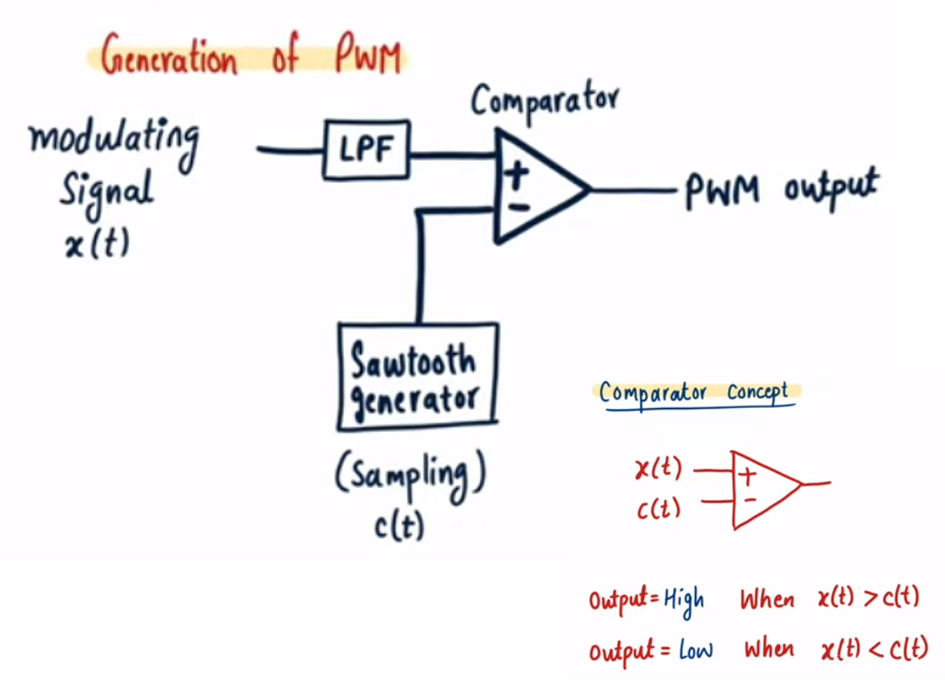 Generation of PWM
Comparator
modulating
Signal
x(t)
LPF
+
−
PWM output
Sawtooth
generator
(Sampling)
c(t)
Comparator Concept
x(t)
+
c(t)
-
Output = High When x(t) > c(t)
Output = Low When x(t) < c(t)